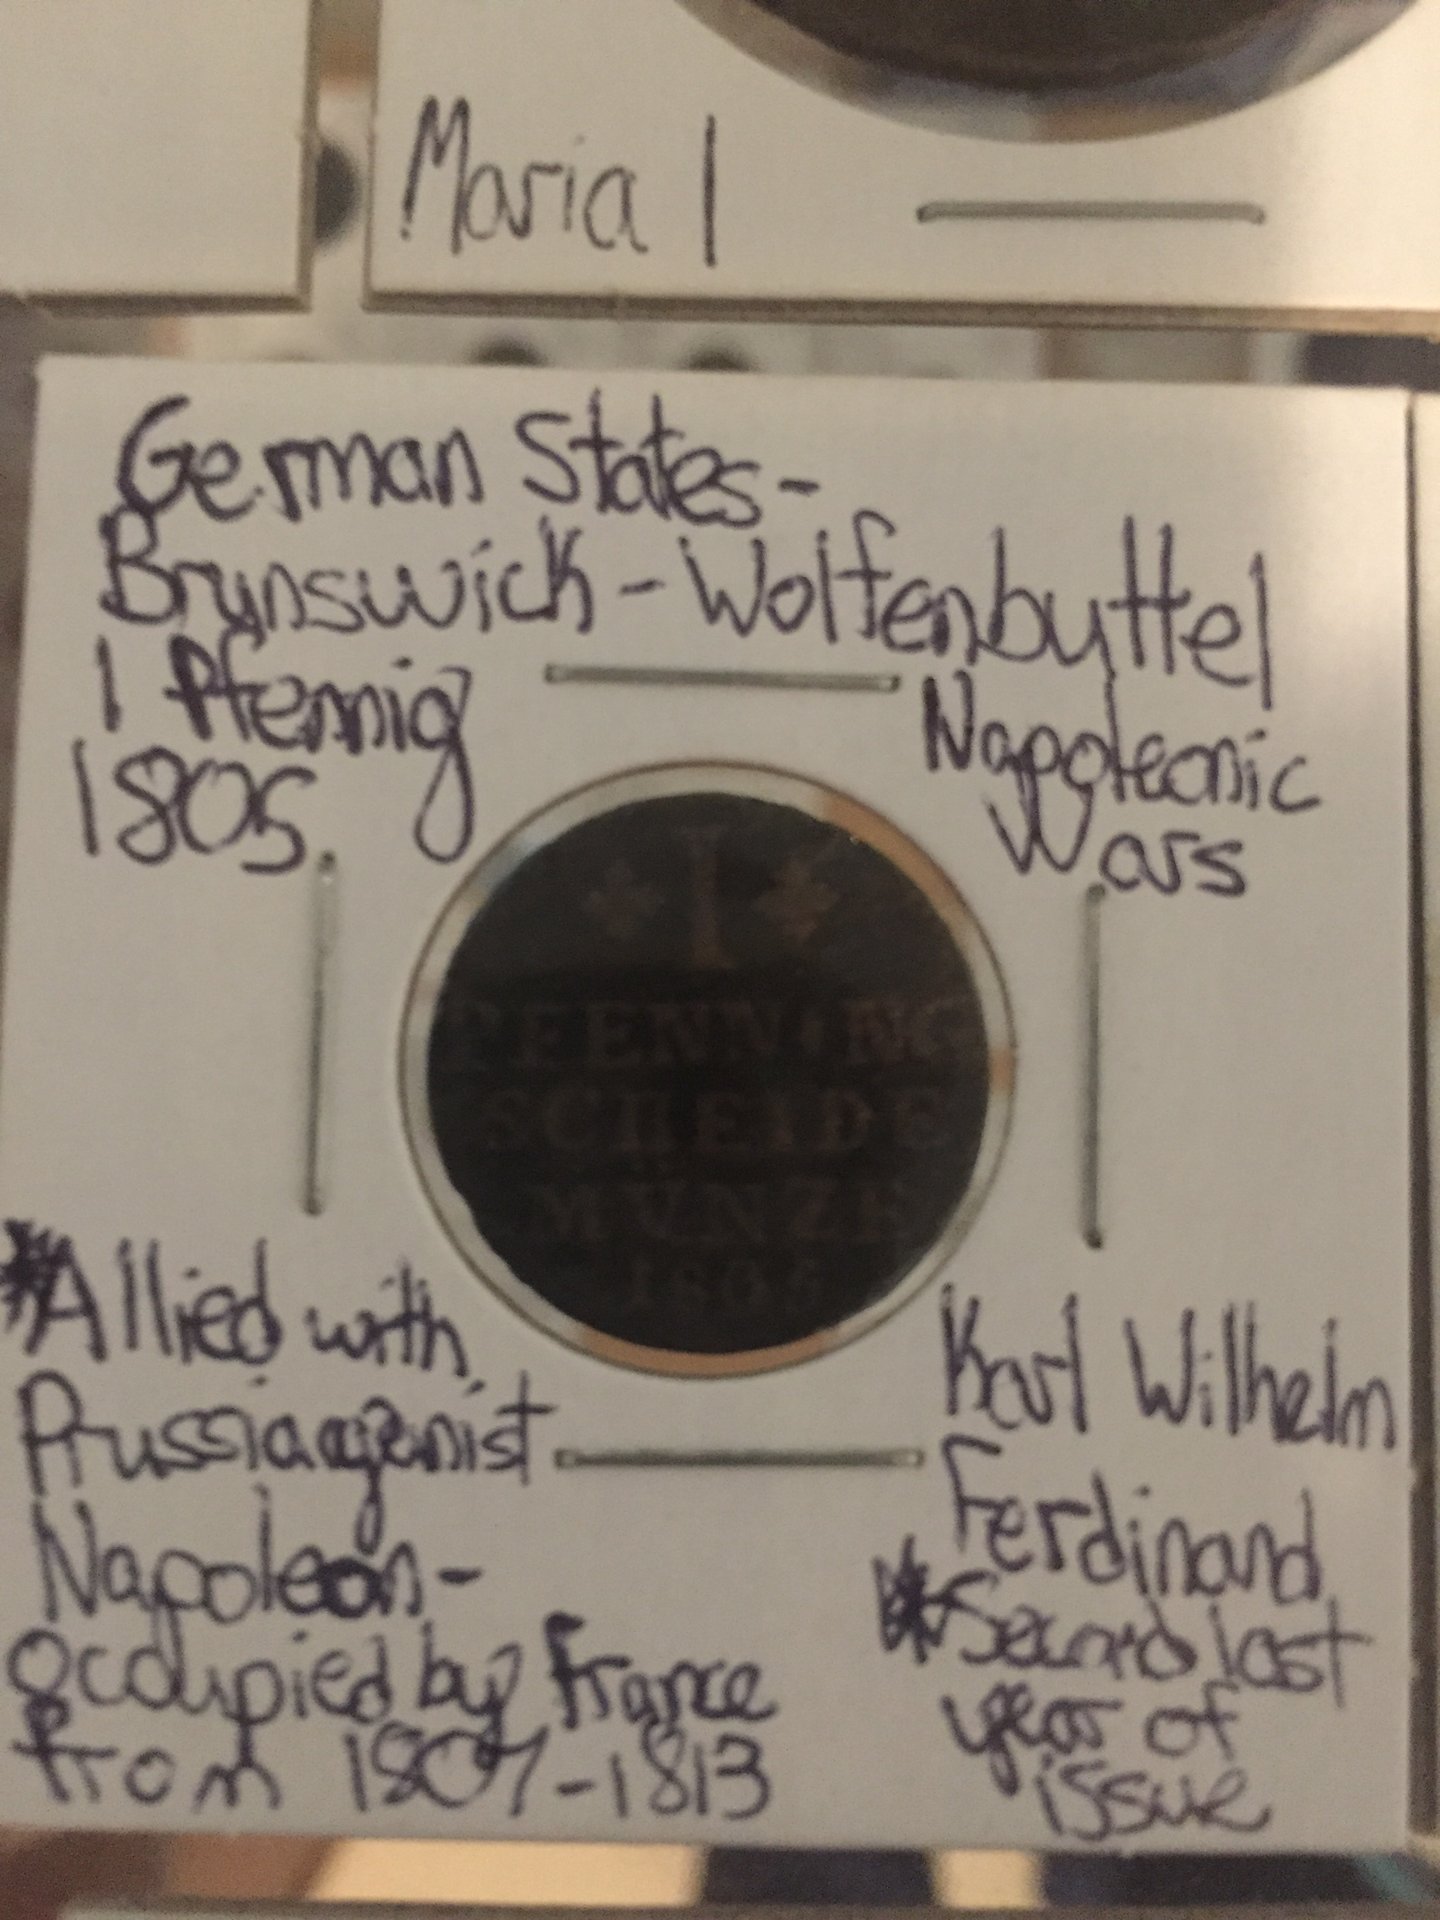 Maria I
German States-
Brunswick-Wolfenbuttel
1 Pfennig
1805
Napoleonic
Wars
I
PFENNING
SCHEIDE
MÜNZE
1805
*Allied with
Prussia aganist
Napoleon-
occupied by France
from 1807-1813
Karl Wilhelm
Ferdinand
*Second last
year of
issue